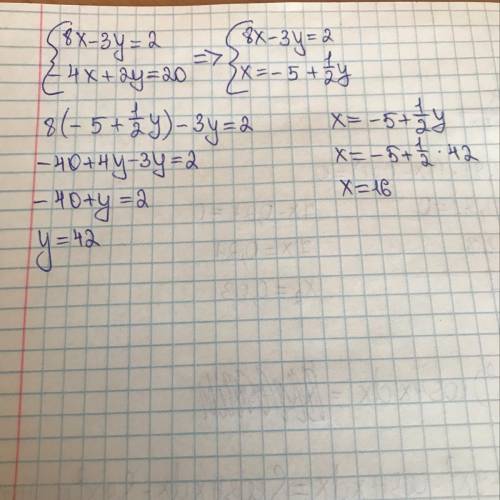 {8x-3y=2 => {8x-3y=2
{-4x+2y=20 {x=-5+1/2y
8(-5+1/2y)-3y=2
-40+4y-3y=2
-40+y=2
y=42
x=-5+1/2y
x=-5+1/2·42
x=16